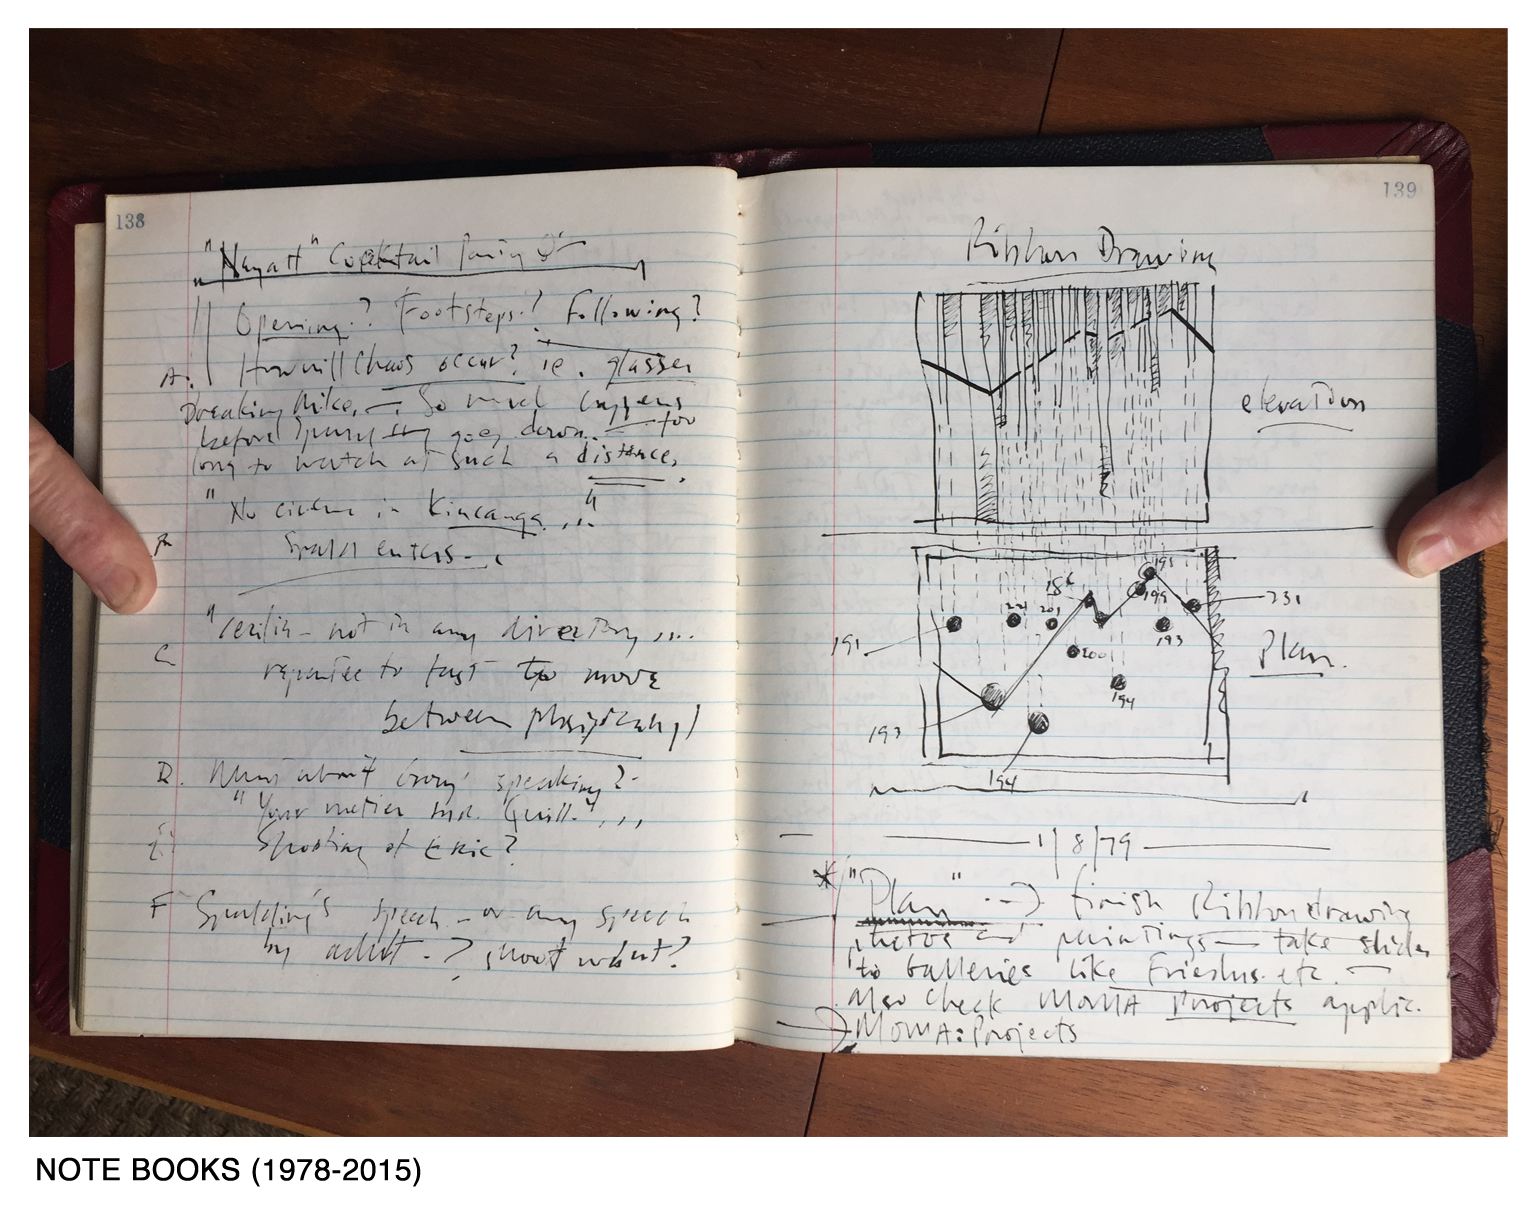 138
"Nayatt" Cocktail Party
Opening? Footsteps? Following?
A. How will Chaos occur? ie. glasses
breaking Mike. — So much happens
before goes down. — too
long to watch at such a distance.
"No cinema in Kincanga..."
enters
"Cecilia - not in any directory....
C. repartee to fast to move
between physically
D. What about speaking?
"Your metier Quill."...
Shooting of Eric?
F Spalding's speech - or any speech
by adult - ? shoot what?
139
Ribbon Drawing
elevation
195
186
221 201 199 231
191 193
200
Plan.
194
193
194
1/8/79
* "Plan" --> finish Ribbon drawing
photos and paintings — take slides
to Galleries like etc. —
Also check MOMA Projects applic.
→ MOMA: Projects
NOTE BOOKS (1978-2015)